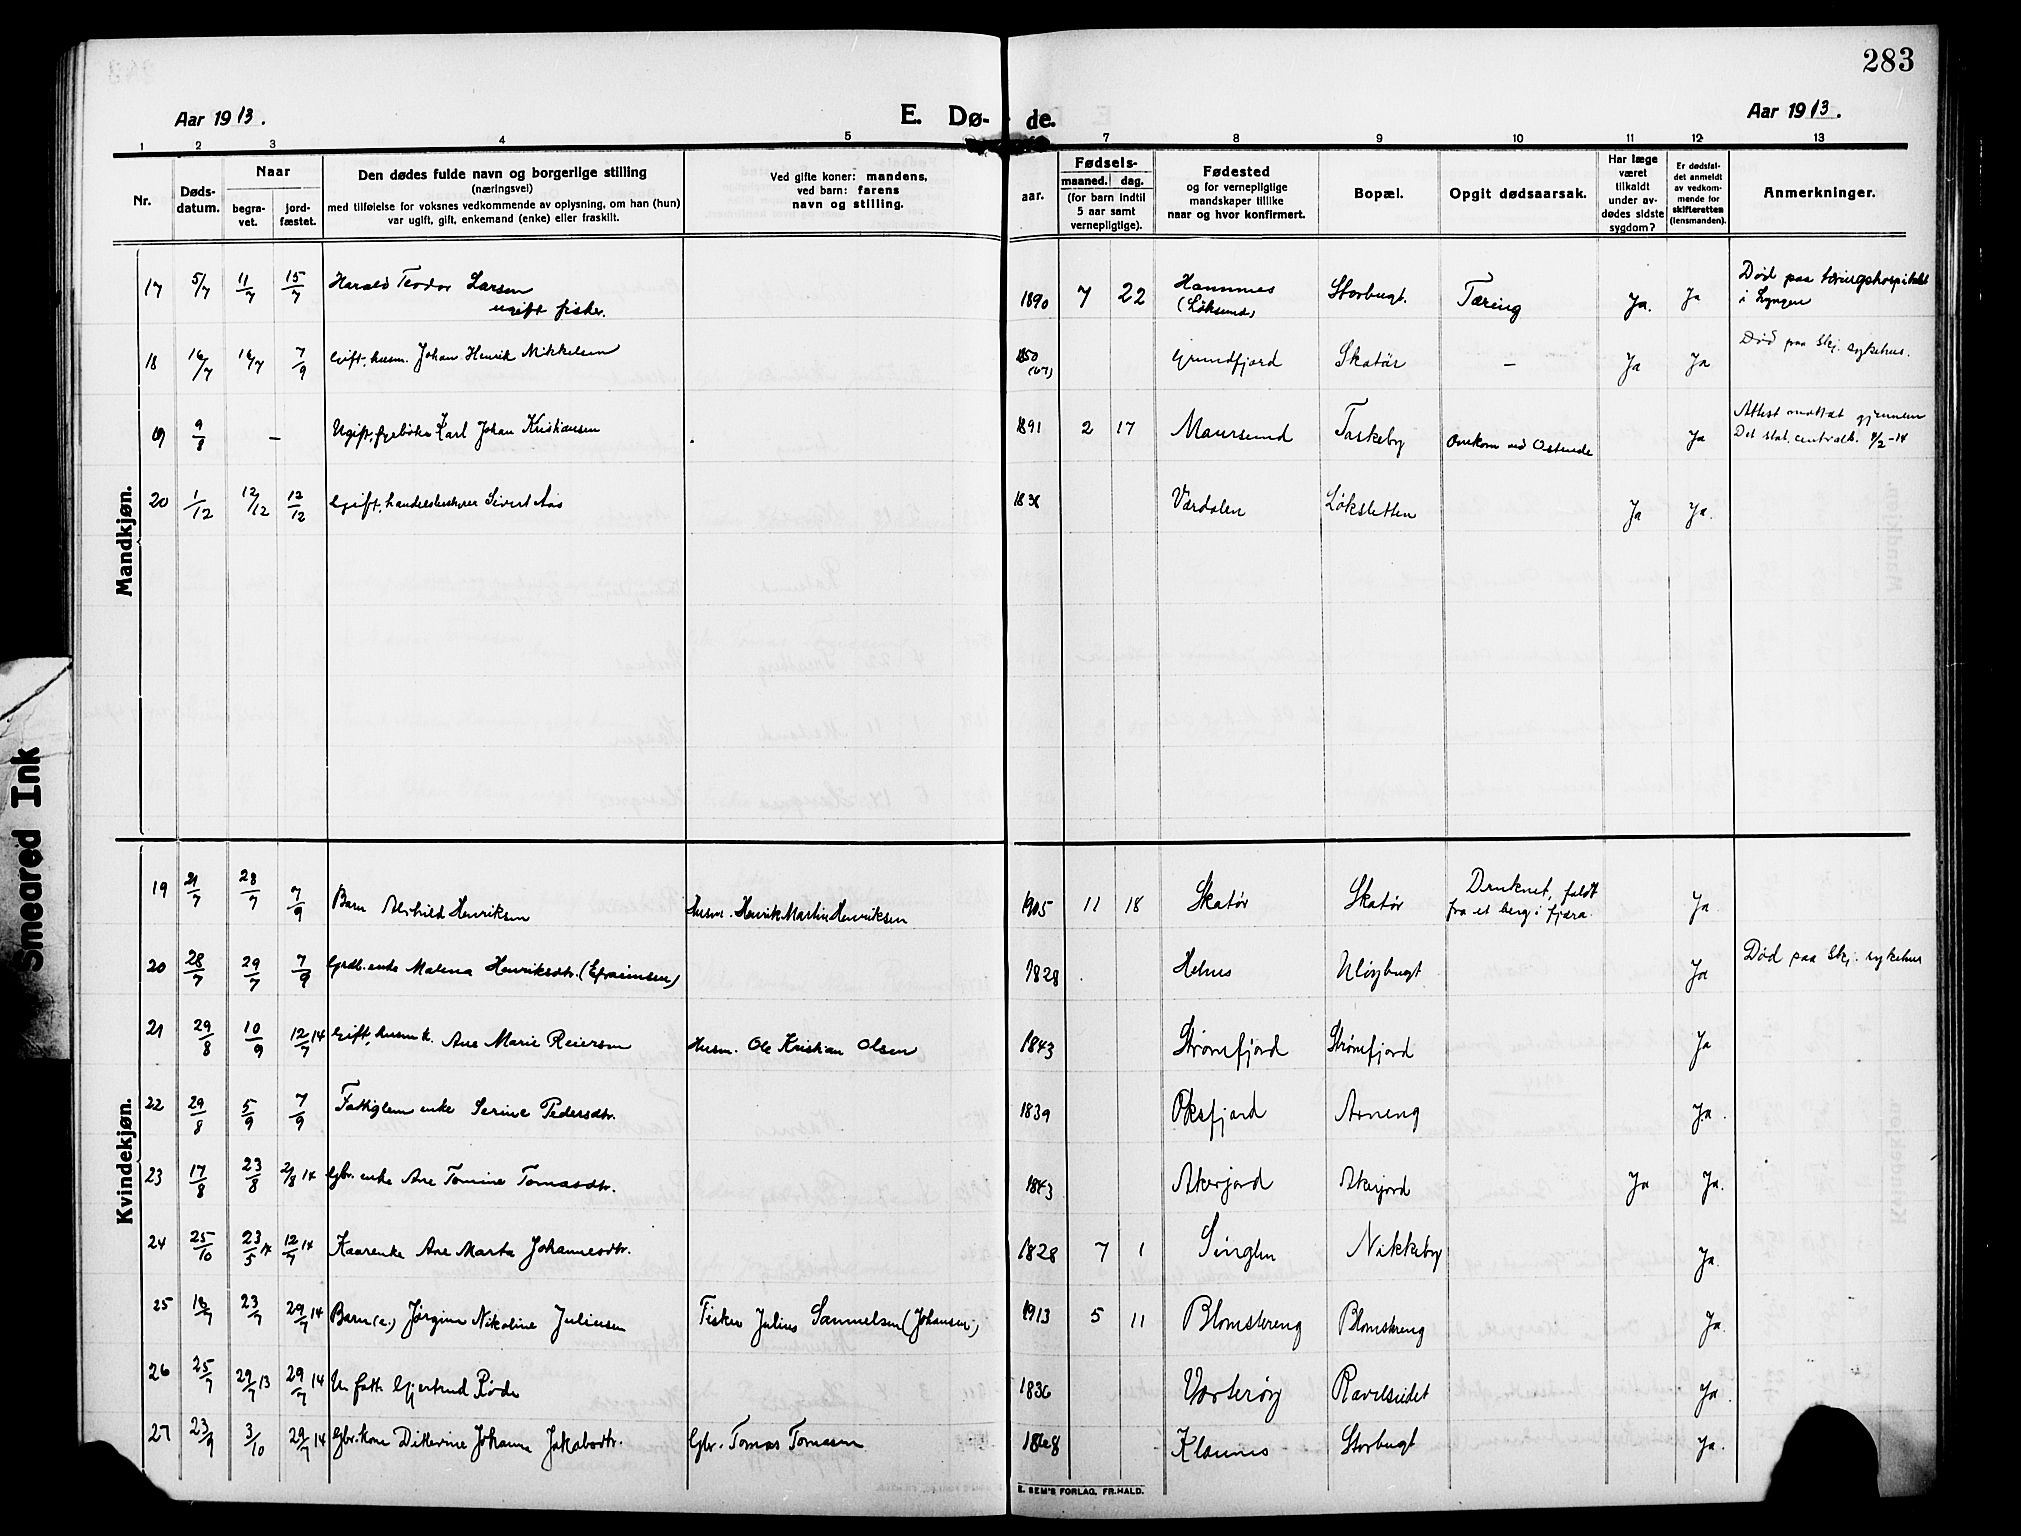 283
Aar 1913.
E. Dø- de.
Aar 1913.
1 2 3 4 5 7 8 9 10 11 12 13
Nr.
Døds-
datum.
Naar
begra-
vet.
jord-
fæstet.
Den dødes fulde navn og borgerlige stilling
(næringsvei)
med tilføielse for voksnes vedkommende av oplysning, om han (hun)
var ugift, gift, enkemand (enke) eller fraskilt.
Ved gifte koner: mandens,
ved barn: farens
navn og stilling.
aar.
Fødsels-
maaned. dag.
(for barn indtil
5 aar samt
vernepligtige).
Fødested
og for vernepligtige
mandskaper tillike
naar og hvor konfirmert.
Bopæl.
Opgit dødsaarsak.
Har læge
været
tilkaldt
under av-
dødes sidste
sygdom?
Er dødsfal-
det anmeldt
av vedkom-
mende for
skifteretten
(lensmanden).
Anmerkninger.
Mandkjøn.
17 5/7 11/7 15/7 Harald Teodor Larsen 1890 7 22 Hamnnes Storbugt. Tæring Ja. Ja Død paa tæringshospitalet
ugift fisker. (Løksund) i Lyngen
18 16/7 16/7 7/9 Gift, husm. Johan Henrik Mikkelsen 1850 Grundfjord Skatør — Ja Ja Død paa Skj. sykehus.
19 9/8 — Ugift, fyrbøter Karl Johan Kristiansen 1891 2 17 Maursund Taskeby Omkom ved Ostende Ja Attest mottat gjennem
Det stat. centralb. 4/2-14
20 1/12 12/12 12/12 Gift, handelsbestyrer Sivert Aas 1838 Værdalen Løksletten Ja Ja.
Kvindekjøn.
19 21/7 28/7 7/9 Barn Alvhild Henriksen Husm. Henrik Martin Henriksen 1905 11 18 Skatør Skatør Druknet, faldt Ja
fra et berg i fjæra.
20 28/7 29/7 7/9 Grdb. enke Malena Henriksdtr. (Efraimsen) 1828 Helnes Uløybugt Ja Død paa Skj. sykehus
21 29/8 10/9 12/7 14 Gift, husm k. Ane Marie Reiersen Husm. Ole Kristian Olsen 1843 Strømfjord Strømfjord Ja
22 29/8 5/9 7/9 Fattiglem enke Serine Pedersdtr. 1839 Oksfjord Arneng Ja.
23 17/8 23/8 2/8 14 Gbr. enke Ane Tomine Tomasdtr. 1843 Akerjord Akerjord Ja Ja.
24 25/10 23/5 14 12/7 14 Kaarenke Ane Marta Johannesdtr. 1828 7 1 Singlen Nikkeby Ja.
25 18/7 23/7 29/7 14 Barn (e.) Jørgine Nikoline Juliusen Fisker Julius Samuelsen (Johansen) 1913 5 11 Blomstereng Blomstereng Ja.
26 25/7 29/7 13 29/7 14 Un. fattt. Gjertrud Røde 1836 Vorterøy Ravelseidet Ja.
27 23/9 3/10 29/7 14 Gbr. kone Ditlevine Johanne Jakobsdtr. Gbr. Tomas Tomasen 1868 Klaunes Storbugt Ja.
E. SEM'S FORLAG, FR.HALD.
Smeared Ink